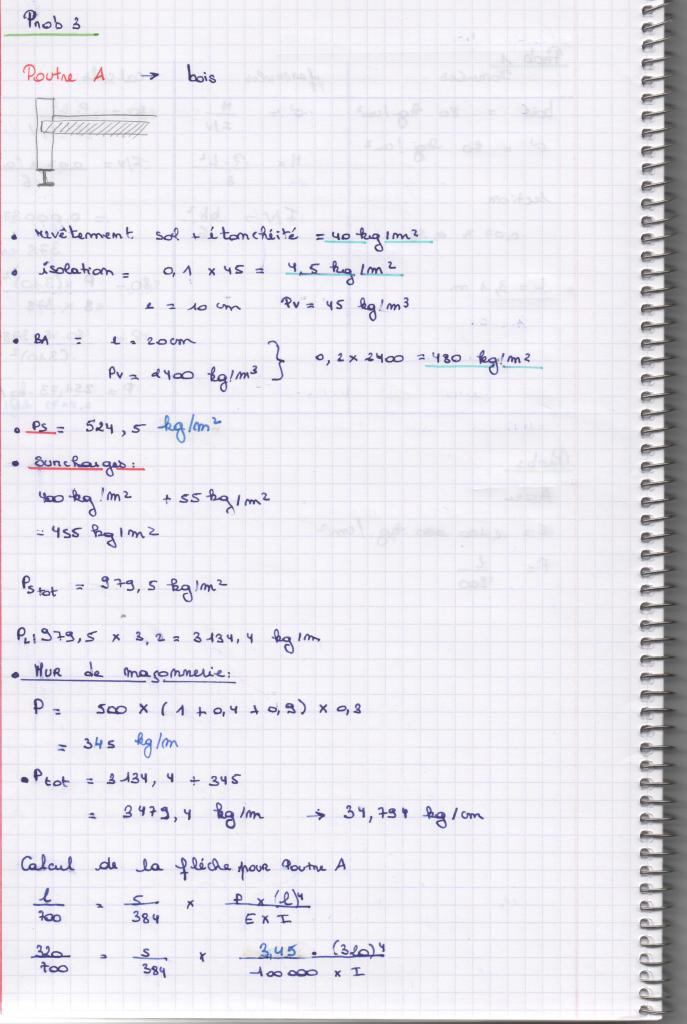 Prob 3
Poutre A → bois
• revêtement sol + étanchéité = 40 kg/m²
• isolation = 0,1 x 45 = 4,5 kg/m²
e = 10 cm Pv = 45 kg/m³
• BA = e = 20cm
Pv = 2400 kg/m³ } 0,2 x 2400 = 480 kg/m²
• PS = 524,5 kg/m²
• Surcharges:
400 kg/m² + 55 kg/m²
= 455 kg/m²
Ps tot = 979,5 kg/m²
PL: 979,5 x 3,2 = 3134,4 kg/m
• MUR de maçonnerie:
P = 500 x (1 + 0,4 + 0,9) x 0,3
= 345 kg/m
• Ptot = 3134,4 + 345
= 3479,4 kg/m → 34,794 kg/cm
Calcul de la flêche pour Poutre A
l/700 = 5/384 x P x (l)⁴/E x I
320/700 = 5/384 x 3,45 . (320)⁴/100 000 x I